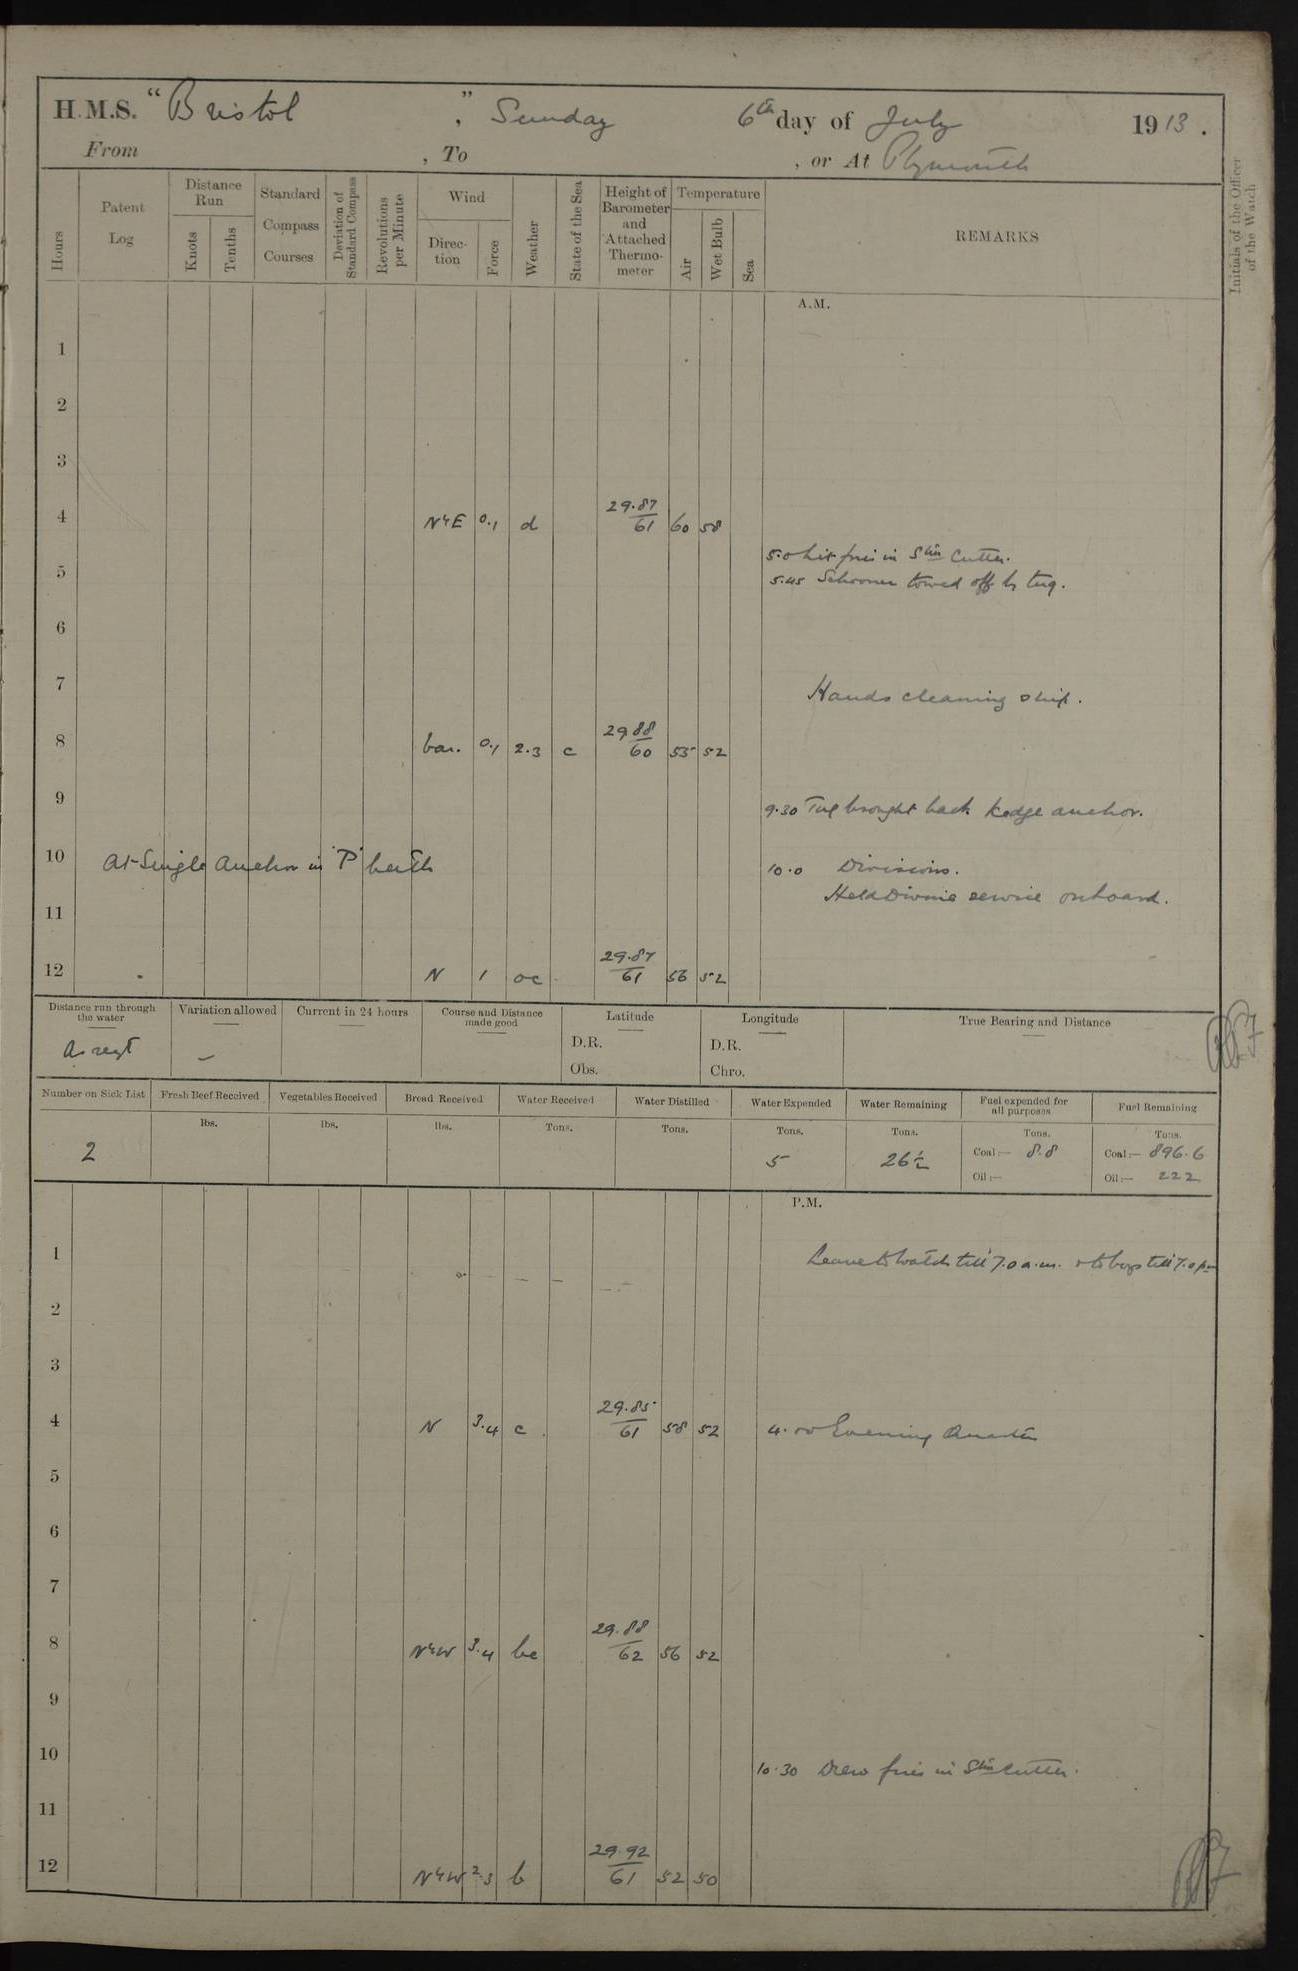 H.M.S. "Bristol", Sunday 6th day of July 1913.
From , To , or At Plymouth
Hours
Patent Log
Distance Run
Knots
Tenths
Standard Compass Courses
Deviation of Standard Compass
Revolutions per Minute
Wind
Direction
Force
Weather
State of the Sea
Height of Barometer and Attached Thermometer
Temperature
Air
Wet Bulb
Sea
REMARKS
Initials of the Officer of the Watch
A.M.
1
2
3
4 N'ly E 0.1 d 29.87 61 60 58
5.0 Lit fires in Stm Cutter.
5
5.45 Schooner towed off by tug.
6
7 Hands cleaning ship.
8 0.1 2.3 c 29.88 60 55 52
9 9.30 Tug brought back kedge anchor.
10 At Single Anchor in "P" berth 10.0 Divisions.
Held Divine service onboard.
11
12 N 1 oc 29.87 61 56 52
Distance run through the water
Variation allowed
Current in 24 hours
Course and Distance made good
Latitude
Longitude
True Bearing and Distance
As reqt —
D.R. D.R.
Obs. Chro.
Number on Sick List
Fresh Beef Received
Vegetables Received
Bread Received
Water Received
Water Distilled
Water Expended
Water Remaining
Fuel expended for all purposes
Fuel Remaining
lbs. lbs. lbs. Tons. Tons. Tons. Tons. Tons. Tons.
2 5 26½ Coal:— 8.8 Coal:— 896.6
Oil:— Oil:— 222
P.M.
1 Leave to Watch till 7.0 a.m. & to boys till 7.0 pm
2
3
4 N 3.4 c 29.85 61 58 52 4.00 Evening Quarters
5
6
7
8 N'ly W 3.4 bc 29.88 62 56 52
9
10 10.30 Drew fires in Stm Cutter.
11
12 N'ly W 2.3 b 29.92 61 52 50